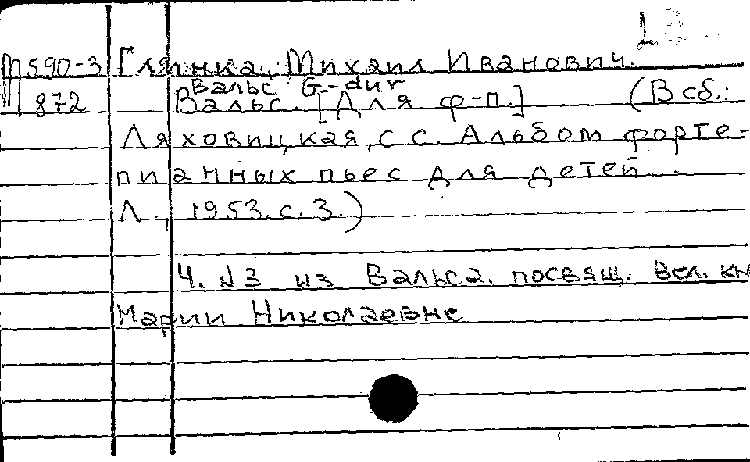 13
М 590-3 Глинка, Михаил Иванович.
Вальс G-dur
М 872 Вальс. [Для ф-п.] (В сб.:
Ляховицкая, С С. Альбом форте-
пианных пьес для детей.
Л. 1953. с. 3.)
Ч. №3 из Вальса, посвящ. Вел. кн
Марии Николаевне